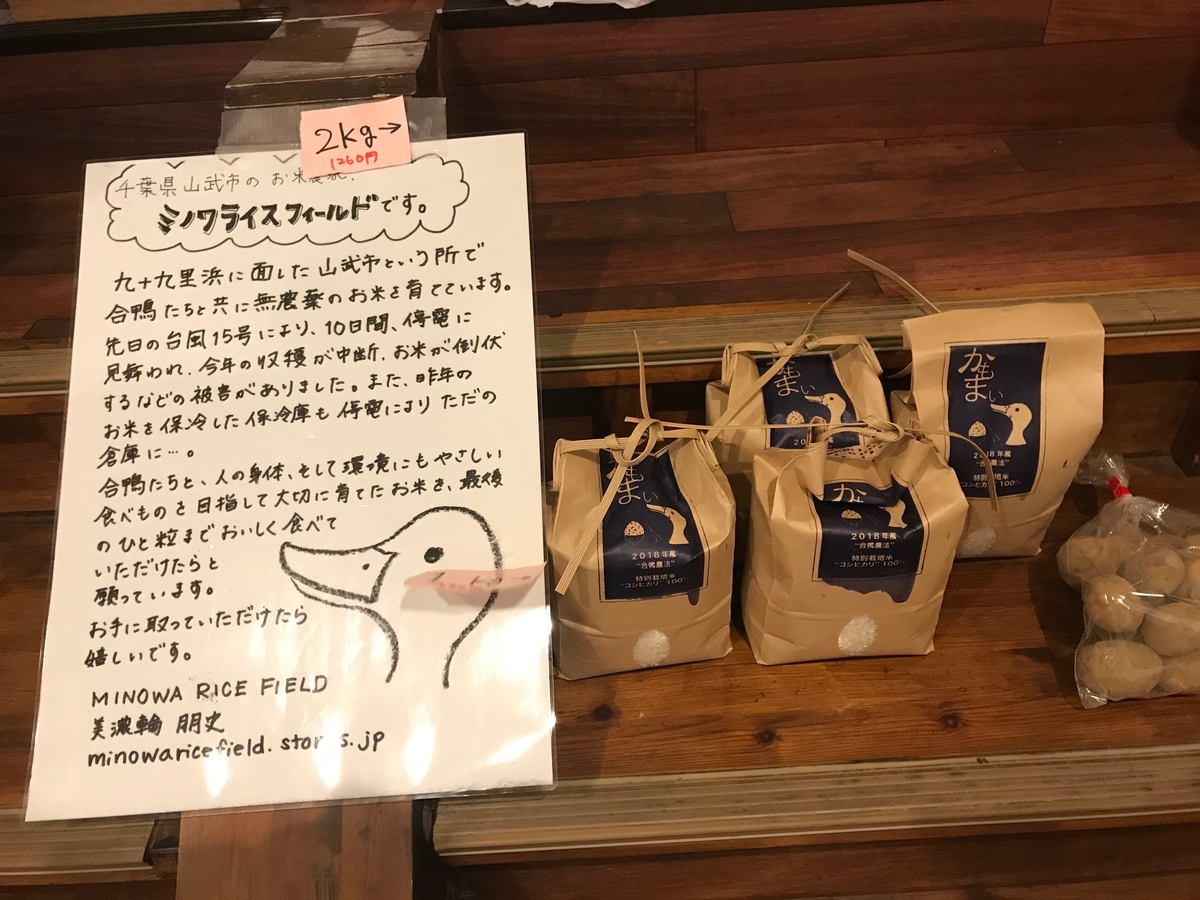 2kg→
1260円
千葉県山武市のお米農家、
ミノワライスフィールドです。
九十九里浜に面した山武市という所で
合鴨たちと共に無農薬のお米を育てています。
先日の台風15号により、10日間、停電に
見舞われ、今年の収穫が中断、お米が倒伏
するなどの被害がありました。また、昨年の
お米を保冷した保冷庫も停電によりただの
倉庫に…。
合鴨たちと、人の身体、そして環境にもやさしい
食べものを目指して大切に育てたお米を、最後
のひと粒までおいしく食べて
いただけたらと
願っています。
お手に取っていただけたら
嬉しいです。
MINOWA RICE FIELD
美濃輪 朋史
minowaricefield.stores.jp
かもまい
20
まい
2018年産
"合鴨農法"
特別栽培米
"コシヒカリ" 100%
か
2018年産
"合鴨農法"
特別栽培米
"コシヒカリ" 100%
かもまい
2018年産
"合鴨農法"
特別栽培米
"コシヒカリ" 100%